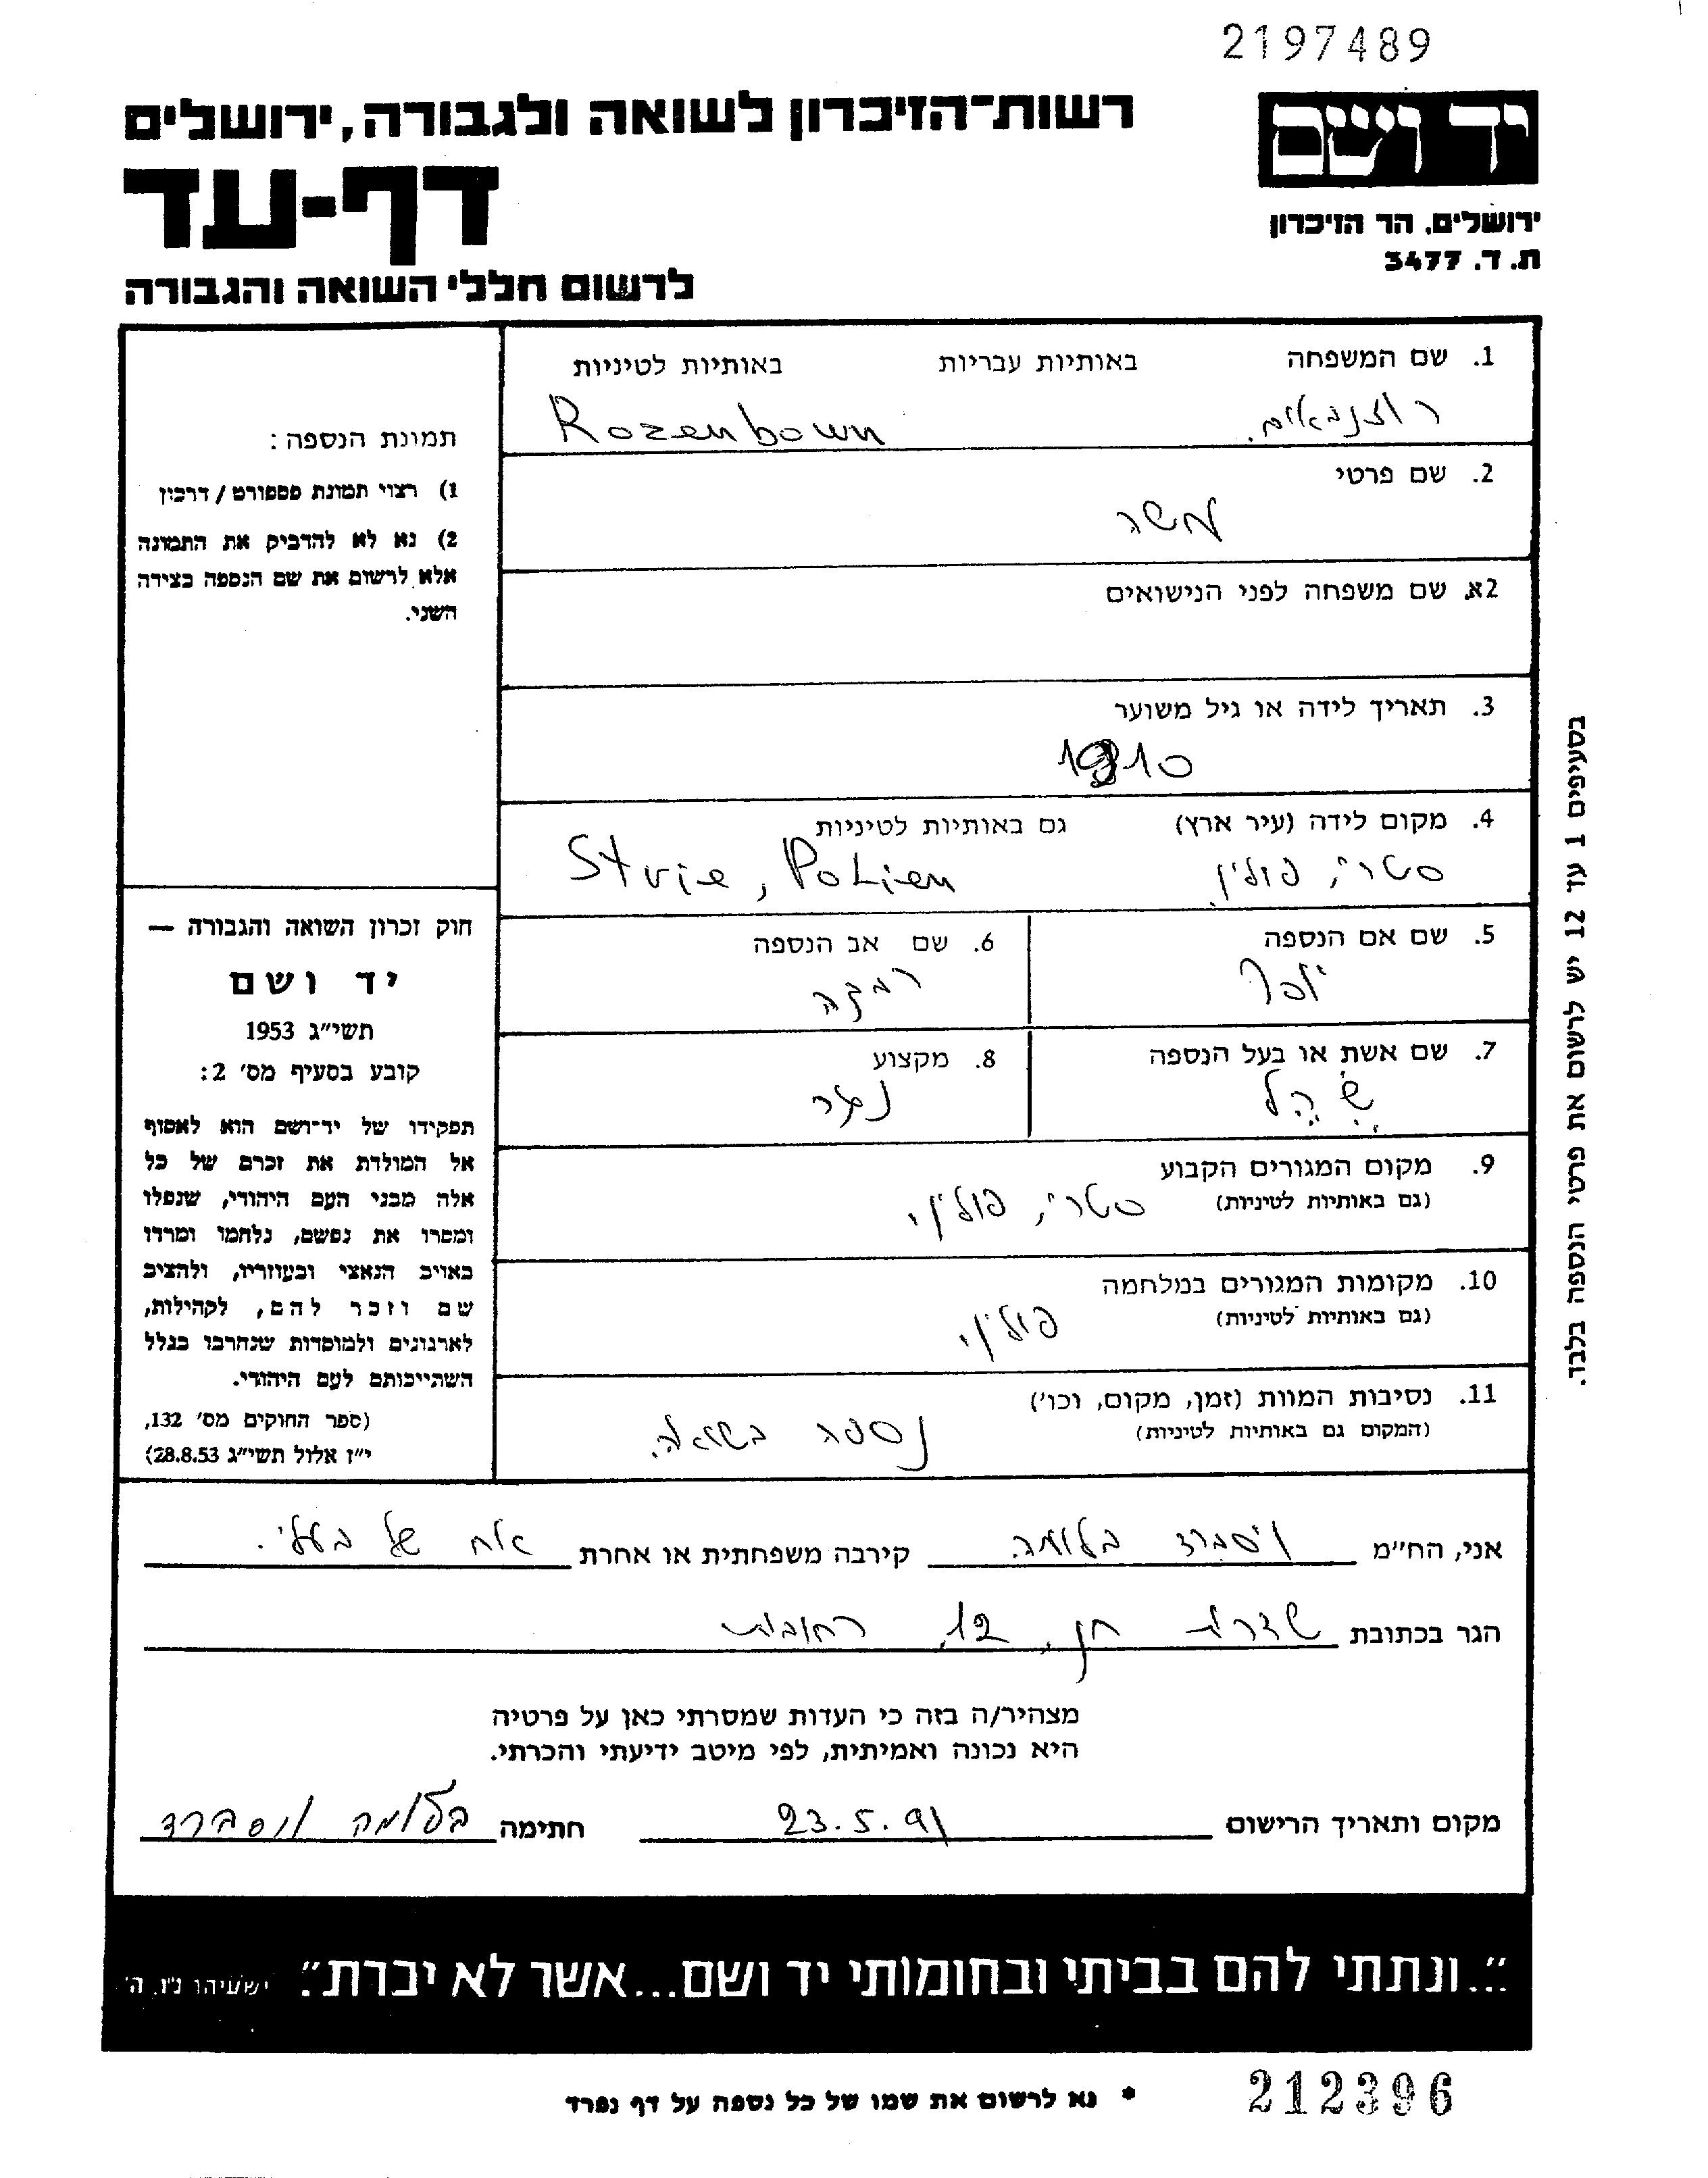 2197489
רשות-הזיכרון לשואה ולגבורה, ירושלים
יד ושם
דף-עד
ירושלים, הר הזיכרון
ת. ד. 3477
לרשום חללי השואה והגבורה
1. שם המשפחה באותיות עבריות באותיות לטיניות
רוזנבאום. Rozenbown
2. שם פרטי
משה
2א. שם משפחה לפני הנישואים
3. תאריך לידה או גיל משוער
1910
4. מקום לידה (עיר ארץ) גם באותיות לטיניות
סטרי, פולין. Strie, Polien
5. שם אם הנספה 6. שם אב הנספה
יוסף רבקה
7. שם אשת או בעל הנספה 8. מקצוע
נגר
9. מקום המגורים הקבוע
(גם באותיות לטיניות) סטרי, פולין.
10. מקומות המגורים במלחמה
(גם באותיות לטיניות) פולין.
11. נסיבות המוות (זמן, מקום, וכו')
(המקום גם באותיות לטיניות) נספה בשואה.
תמונת הנספה:
1) רצוי תמונת פספורט / דרכון
2) נא לא להדביק את התמונה
אלא לרשום את שם הנספה בצידה
השני.
חוק זכרון השואה והגבורה —
יד ושם
תשי"ג 1953
קובע בסעיף מס' 2:
תפקידו של יד־ושם הוא לאסוף
אל המולדת את זכרם של כל
אלה מבני העם היהודי, שנפלו
ומסרו את נפשם, נלחמו ומרדו
באויב הנאצי ובעוזריו, ולהציב
שם וזכר להם, לקהילות,
לארגונים ולמוסדות שנחרבו בגלל
השתייכותם לעם היהודי.
(ספר החוקים מס' 132,
י"ז אלול תשי"ג 28.8.53)
בסעיפים 1 עד 12 יש לרשום את פרטי הנספה בלבד.
אני, הח"מ ויסברד בלומה. קירבה משפחתית או אחרת אח של בעלי.
הגר בכתובת שדרות חן, 12, רחובות
מצהיר/ה בזה כי העדות שמסרתי כאן על פרטיה
היא נכונה ואמיתית, לפי מיטב ידיעתי והכרתי.
מקום ותאריך הרישום 23.5.91 חתימה בלומה ווסברד
"...ונתתי להם בביתי ובחומותי יד ושם...אשר לא יכרת". ישעיהו נ"ו, ה'
* נא לרשום את שמו של כל נספה על דף נפרד
212396